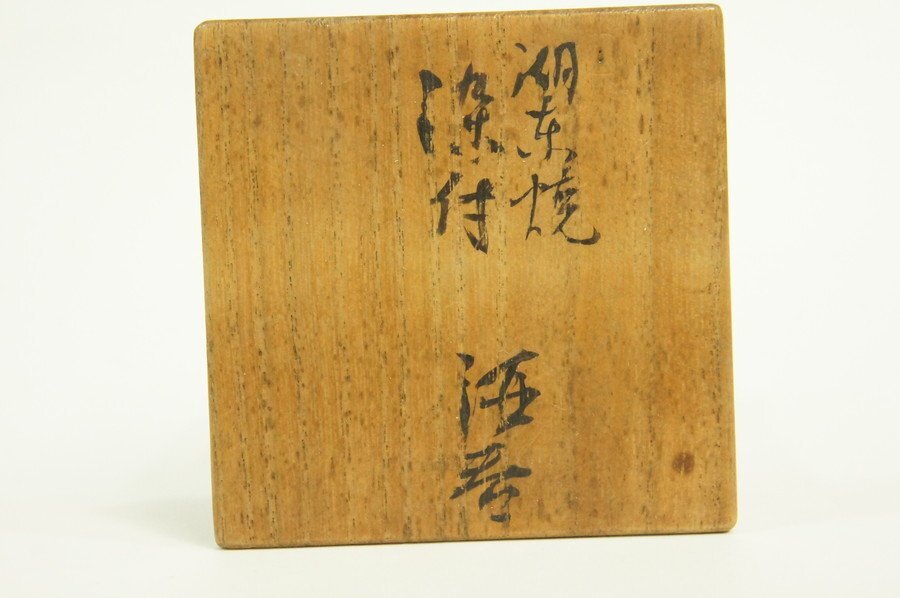 湖東焼
染付
酒呑